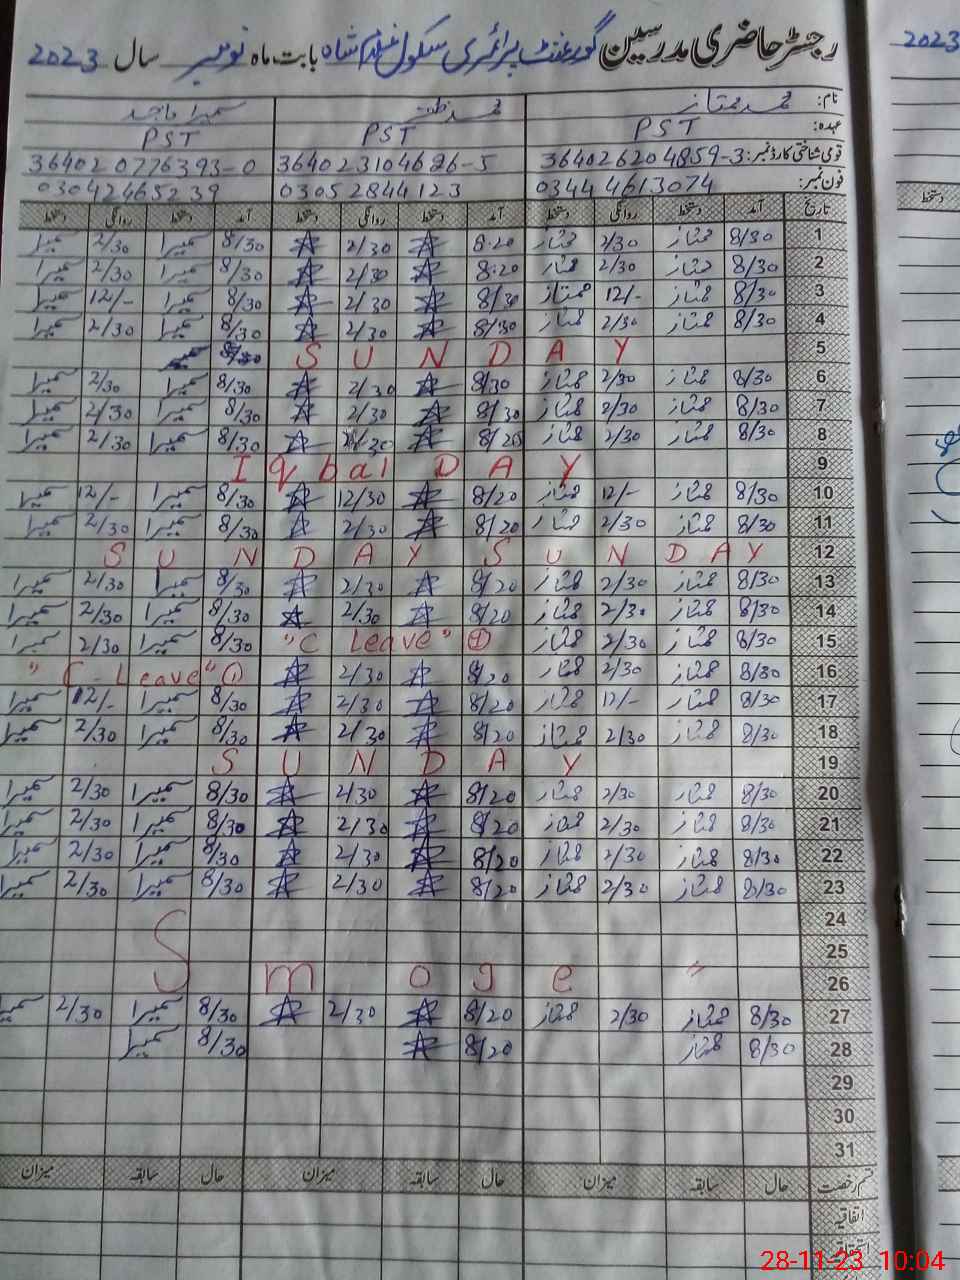 رجسٹر حاضری مدرسین گورنمنٹ پرائمری سکول غلام شاہ بابت ماہ نومبر سال 2023
نام: محمد ممتاز محمد سمیرا ماجد
عہدہ: PST PST PST
قومی شناختی کارڈ نمبر: 364026204859-3 364023104686-5 364020776393-0
فون نمبر: 03444613074 03052844123 03042465239
تاریخ آمد دستخط روانگی دستخط آمد دستخط روانگی دستخط آمد دستخط روانگی دستخط
1 8/30 ممتاز 2/30 ممتاز 8.20 2/30 8/30 سمیرا 2/30 سمیرا
2 8/30 ممتاز 2/30 ممتاز 8.20 2/30 8/30 سمیرا 2/30 سمیرا
3 8/30 ممتاز 12/- ممتاز 8/30 2/30 8/30 سمیرا 12/- سمیرا
4 8/30 ممتاز 2/30 ممتاز 8/30 2/30 8/30 سمیرا 2/30 سمیرا
5 SUNDAY
6 8/30 ممتاز 2/30 ممتاز 8/30 2/30 8/30 سمیرا 2/30 سمیرا
7 8/30 ممتاز 2/30 ممتاز 8/30 2/30 8/30 سمیرا 2/30 سمیرا
8 8/30 ممتاز 2/30 ممتاز 8/20 8/30 سمیرا 2/30 سمیرا
9 Iqbal DAY
10 8/30 ممتاز 12/- ممتاز 8/20 12/30 8/30 سمیرا 12/- سمیرا
11 8/30 ممتاز 2/30 ممتاز 8/20 2/30 8/30 سمیرا 2/30 سمیرا
12 SUNDAY SUNDAY
13 8/30 ممتاز 2/30 ممتاز 8/20 2/30 8/30 سمیرا 2/30 سمیرا
14 8/30 ممتاز 2/30 ممتاز 8/20 2/30 8/30 سمیرا 2/30 سمیرا
15 8/30 ممتاز 2/30 ممتاز "C Leave" 8/30 سمیرا 2/30 سمیرا
16 8/30 ممتاز 2/30 ممتاز 8/20 2/30 "C-Leave" ①
17 8/30 ممتاز 12/- ممتاز 8/20 2/30 8/30 سمیرا 12/- سمیرا
18 8/30 ممتاز 2/30 ممتاز 8/20 2/30 8/30 سمیرا 2/30 سمیرا
19 SUNDAY
20 8/30 ممتاز 2/30 ممتاز 8/20 2/30 8/30 سمیرا 2/30 سمیرا
21 8/30 ممتاز 2/30 ممتاز 8/20 2/30 8/30 سمیرا 2/30 سمیرا
22 8/30 ممتاز 2/30 ممتاز 8/20 2/30 8/30 سمیرا 2/30 سمیرا
23 8/30 ممتاز 2/30 ممتاز 8/20 2/30 8/30 سمیرا 2/30 سمیرا
24
25
26 Smoge "
27 8/30 ممتاز 2/30 ممتاز 8/20 2/30 8/30 سمیرا 2/30 سمیرا
28 8/30 ممتاز 8/20 8/30 سمیرا
29
30
31
قسم رخصت حال سابقہ میزان حال سابقہ میزان حال سابقہ میزان
اتفاقیہ
2023
دستخط
28-11-23 10:04